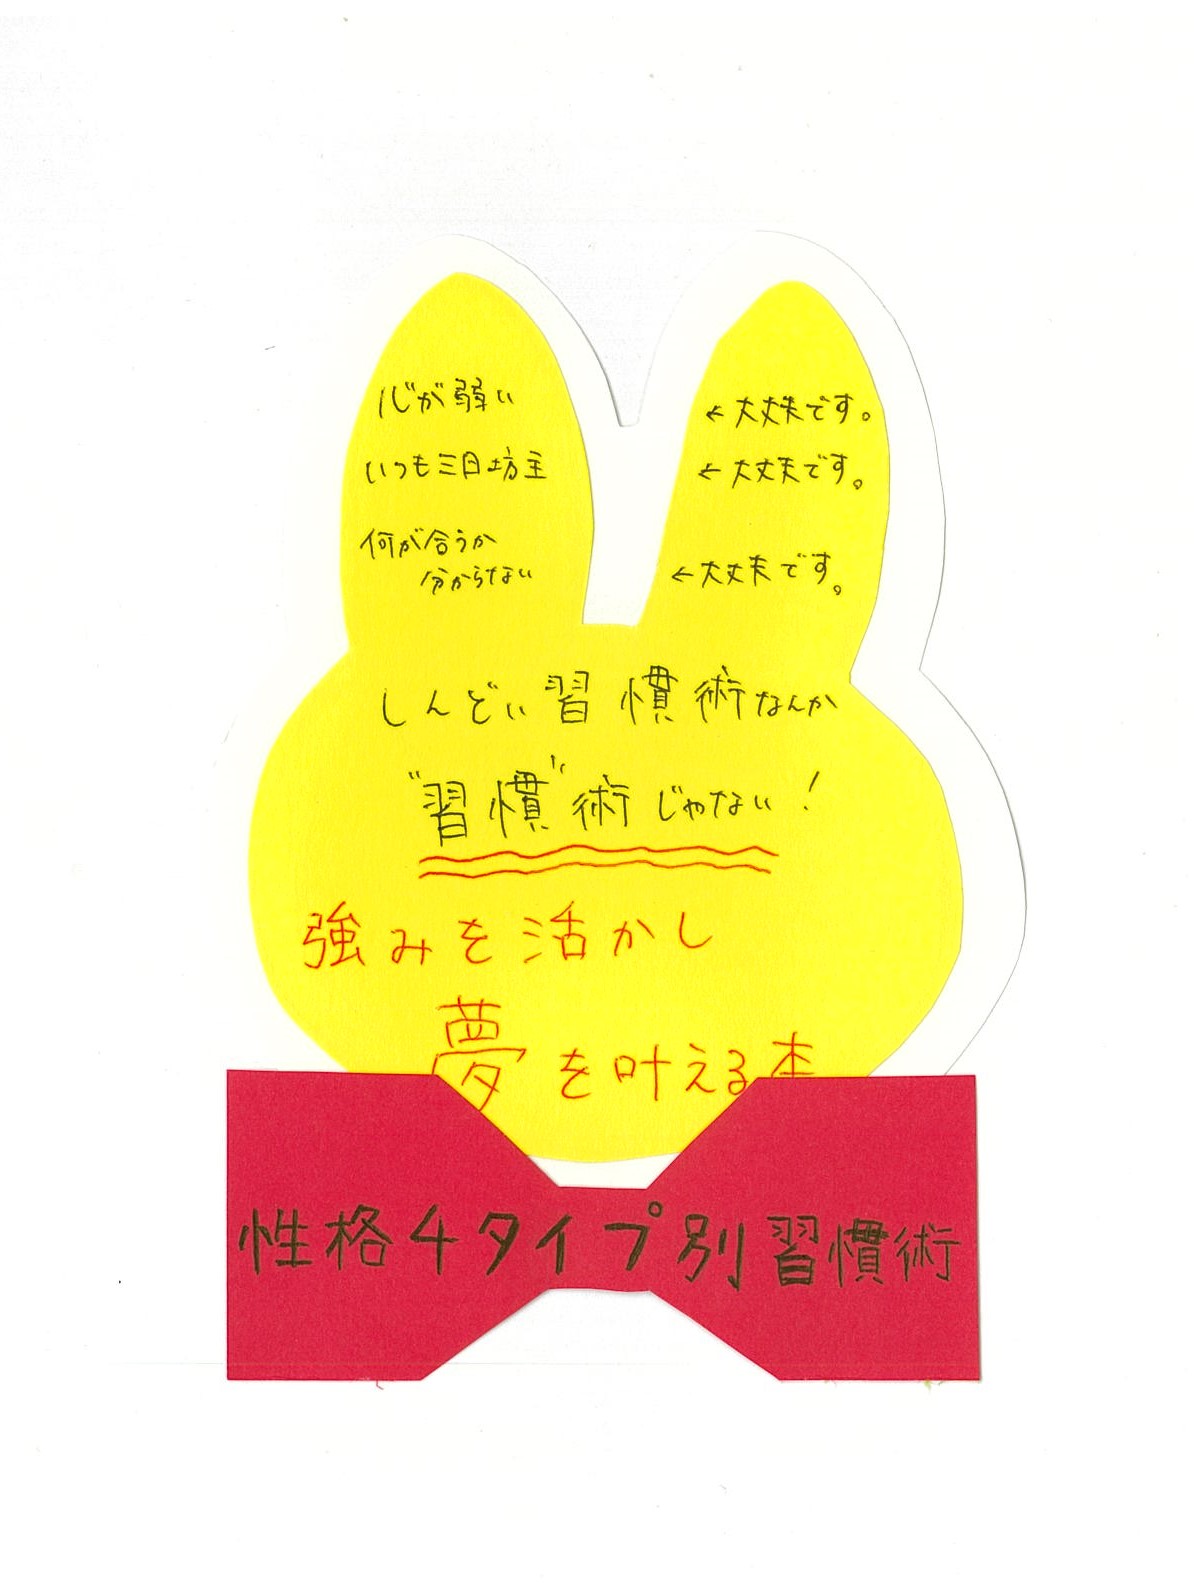 心が弱い ←大丈夫です。
いつも三日坊主 ←大丈夫です。
何が合うか
分からない ←大丈夫です。
しんどい習慣術なんか
"習慣"術じゃない!
強みを活かし
夢を叶える本
性格4タイプ別習慣術